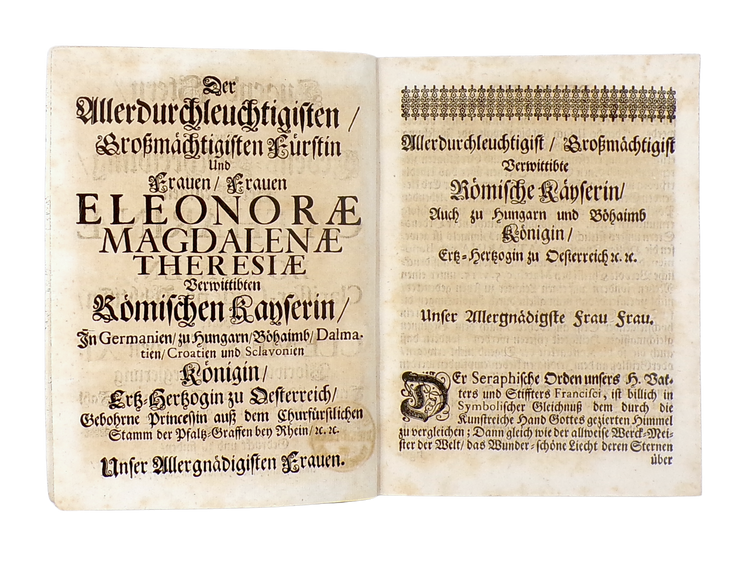 Der
Allerdurchleuchtigisten /
Großmächtigisten Fürstin
Und
Frauen / Frauen
ELEONORÆ
MAGDALENÆ
THERESIÆ
Verwittibten
Römischen Kayserin /
In Germanien / zu Hungarn / Böhaimb / Dalma-
tien / Croatien und Sclavonien
Königin /
Ertz-Hertzogin zu Oesterreich /
Gebohrne Princessin auß dem Churfürstlichen
Stamm der Pfaltz-Graffen bey Rhein / ꝛc. ꝛc.
Unser Allergnädigisten Frauen.
Allerdurchleuchtigist / Großmächtigist
Verwittibte
Römische Käyserin /
Auch zu Hungarn und Böhaimb
Königin /
Ertz-Hertzogin zu Oesterreich ꝛc. ꝛc.
Unser Allergnädigste Frau Frau.
DEr Seraphische Orden unsers H. Vat-
ters und Stiffters Francisci, ist billich in
Symbolischer Gleichnuß dem durch die
Kunstreiche Hand Gottes gezierten Himmel
zu vergleichen ; Dann gleich wie der allweise Werck-Mei-
ster der Welt / das Wunder-schöne Liecht deren Sternen
über